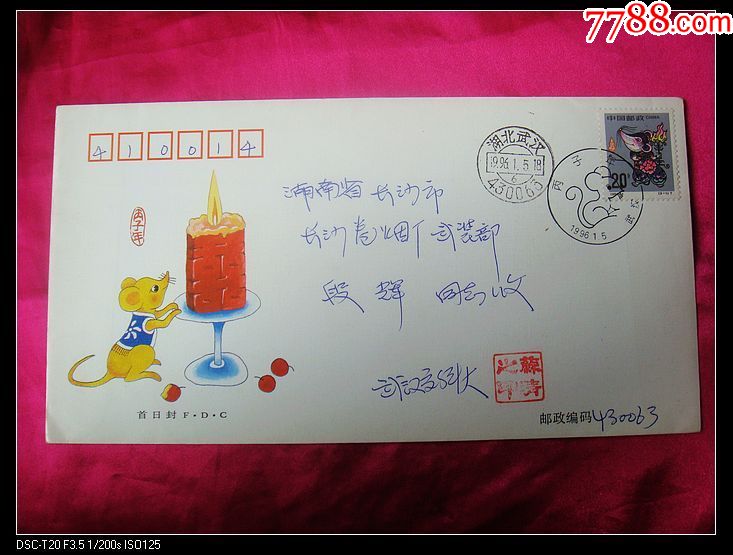 7788.com
410014
湖北武汉
1996.1.5.18
6
430063
中国邮政
CHINA
20
丙子年
1996.1.5
丙子年
湖南省长沙市
长沙卷烟厂武装部
段辉 同志收
武汉
首日封 F·D·C
之印
邮政编码430063
DSC-T20 F3.5 1/200s ISO125